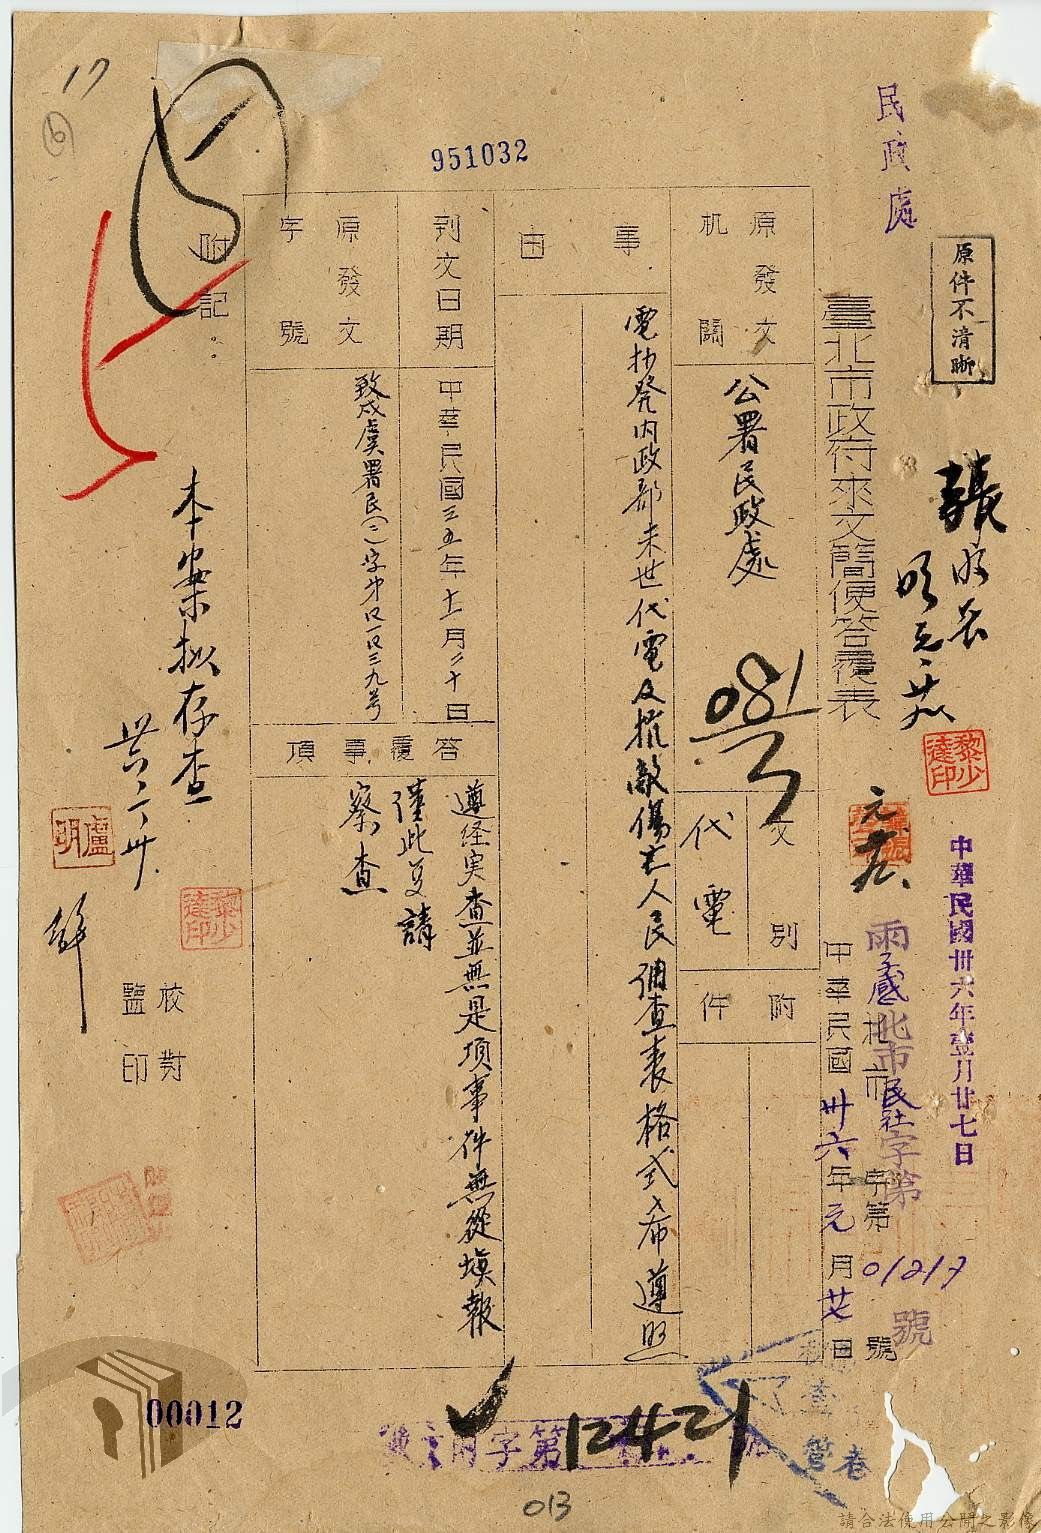 17
6
951032
民政處
原件不清晰
臺北市政府來文簡便答覆表
中華民國卅六年壹月廿七日
黎少達印
北市民社字第01217號
中華民國卅六年元月廿七日
原發文机關
公署民政處
文別
代電
附件
事由
電抄發內政部未世代電及抗敵傷亡人民調查表格式希遵照
到文日期
中華民國三五年十二月二十日
原發文字號
致戌虞署民(二)字第
答覆事項
遵經実查並無是項事件無從填報
謹此复請
察查
附記：
本案拟存查
盧明
黎少達印
校對
監印
00012
字第12421
查
管卷
013
請合法使用公開之影像